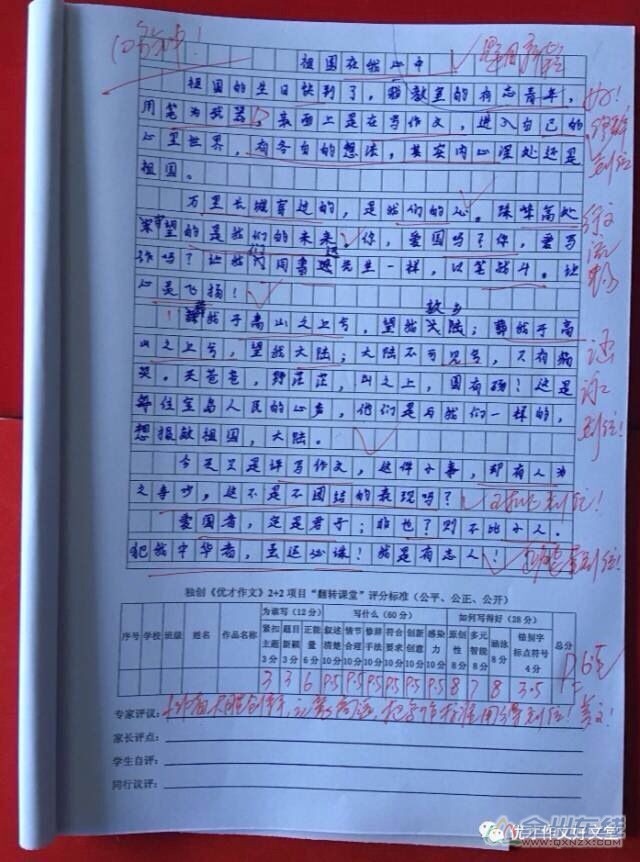 祖国在我心中
祖国的生日快到了，我教室的有志青年，
用笔为武器，表面上是在写作文，进入自己的
心里世界，有各自的想法，其实内心深处还是
祖国。
万里长城穿过的，是我们的心。珠峰高处
望的是我们的未来。你，爱国吗？你，爱写
作吗？让我们用鲁迅先生一样，以笔战斗。让
心灵飞扬！
故乡
葬我于高山之上兮，望我大陆；葬我于高
山之上兮，望我大陆；大陆不可见兮，只有痛
哭。天苍苍，野茫茫，山之上，国有殇！这是
每住宝岛人民的心声，他们是与我们一样的，
想报敬祖国，大陆。
今天又是评写作文，这件小事，却有人为
之争吵，这不是不团结的表现吗？
爱国者，定是君子；非也？则不比小人。
犯我中华者，虽远必诛！我是有志人！
独创《优才作文》2+2项目“翻转课堂”评分标准（公平、公正、公开）
为谁写（12分） 写什么（60分） 如何写得好（28分）
序号 学校 班级 姓名 作品名称 紧扣主题3分 题目新颖3分 正能量6分 叙述清楚10分 情节合理10分 修辞手法10分 符合要求10分 创新创意10分 感染力10分 原创性8分 多元智能8分 涵泳8分 错别字标点符号4分 总分
3 3 6 9.5 9.5 9.5 9.5 9.5 9.5 8 7 8 3.5
专家评议：
家长评点：
学生自评：
同行议评：
优才作文好文堂
金州在线
www.QXNZX.com